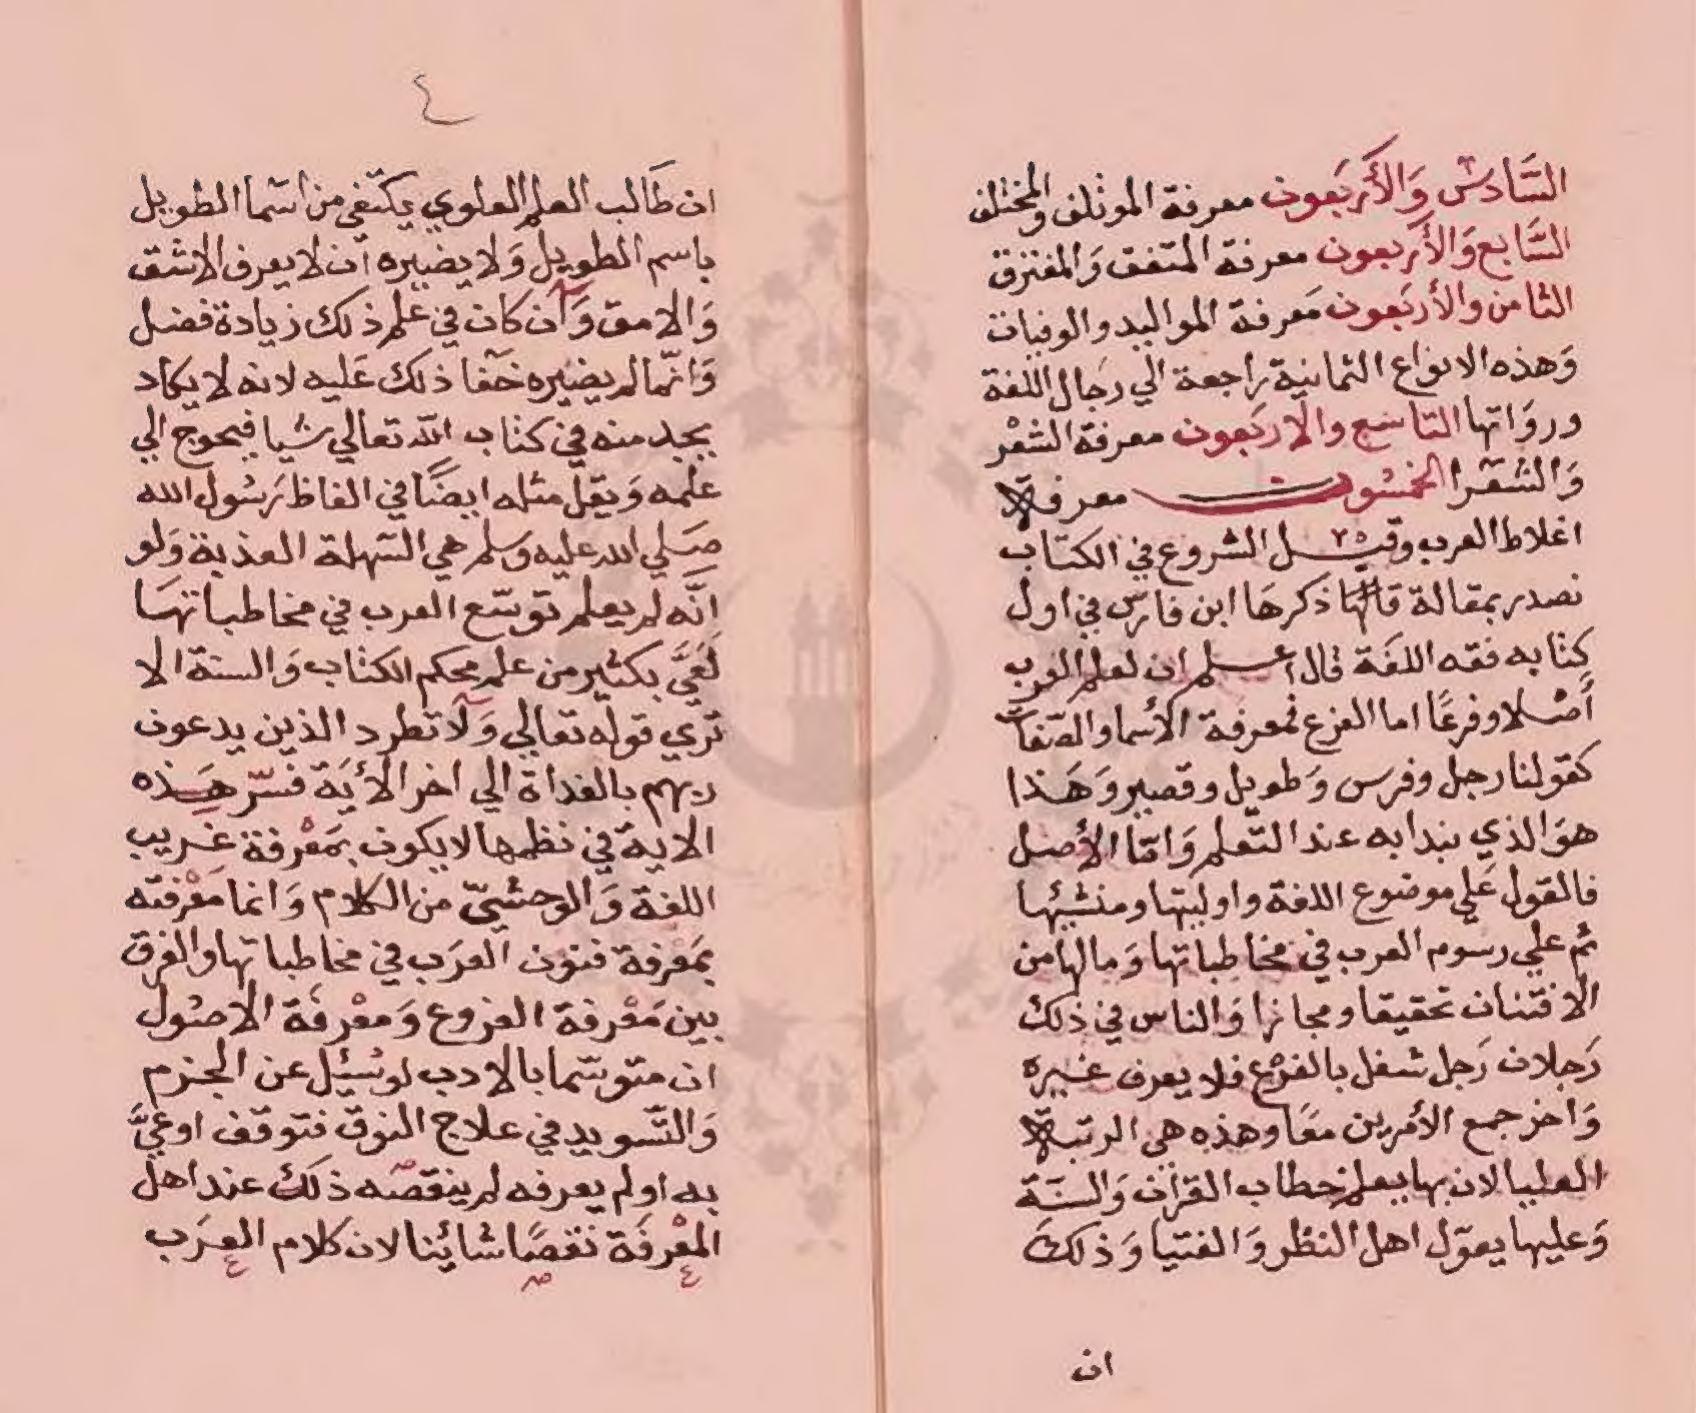 السَّادسُ وَالأَربَعون معرفة الموتلف والمختلف
السَّابع وَالأَربعون معرفة المتفق وَالمفترق
الثامن والأربَعون مَعرفة المواليد والوفيات
وَهذه الانواع الثمانية راجعة الي رجَال اللغة
ورواتها التاسع والاربَعون معرفة الشعْر
وَالشعَرا الخمسُون معرفة
اغلاط العرب وقبل الشروع في الكتاب
نصدر بمقالة قالها ذكرهَا ابن فارس في اول
كتابه فقه اللغَة قال اعلم ان لعلم العرب
أصْلا وفرعًا اما الفرع فمعرفة الأسما والصّفات
كقولنا رجل وفرس وَطويل وقصير وَهَذا
هوَ الذي يبدا به عند التّعلم وَامّا الأصْل
فالقول عَلي موضوع اللغة واوليتها ومنشئها
ثم علي رسوم العرب في مخاطباتها وَمالها من
الافتنان تحقيقا ومجازا وَالناس في ذلك
رَجلان رَجل شغل بالفرْع فلا يعرف غيره
وَاخر جمع الأمرين معَا وهذه هي الرتبة
العليا لان بها يعلم خطاب القرآن وَالسنّة
وَعليها يعوّل اهل النظر وَالفتيا وَذلك
ان
٤
ان طَالب العلم العلوي يكتفي من اسما الطويل
باسم الطويل وَلا يضيره ان لا يعرف الاشق
وَالامق وَان كان في علم ذلك زيادة فضل
وَانّما لم يضيره خفا ذلك عَليه لانه لا يكاد
يجد منه في كتاب الله تعالي شيا فيحوج الي
علمه وَيقل مثله ايضًا في الفاظ رَسُول الله
صَلي الله عليه وسلم هي السّهلة العذبة وَلو
انّه لم يعلم توسّع العرب في مخاطباتهَا
لَعَيَّ بكثير من علم محكم الكتاب وَالسنة الا
تري قوله تعالي وَلا تطرد الذين يدعون
ربهم بالغداة الي اخر الأيَة فسّر هَذه
الاية في نظمها لا يكون بمَعْرفة غريب
اللغة وَالوحشيّ من الكلام وَانما مَعْرفته
بمَعْرفة فنون العرَب في مخاطباتها والفرق
بين مَعْرفة الفروع وَمعْرفة الاصُول
ان متوسّما بالادب لوسُئِل عن الجزم
وَالتّسويد في علاج النوق فتوقف اوعيَّ
به اولم يعرفه لم ينقصه ذلك عند اهل
المعْرفَة نقصًا شائنا لان كلام العرَب